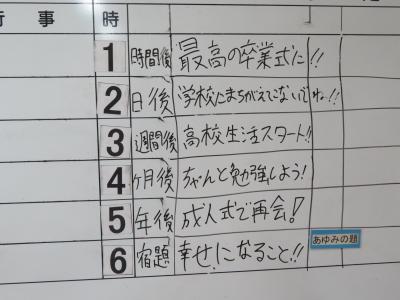 行事 時
1 時間後 最高の卒業式に!!
2 日後 学校にまちがえてこないでね!!
3 週間後 高校生活スタート!!
4 ヶ月後 ちゃんと勉強しよう!
5 年後 成人式で再会!
6 宿題 幸せになること!!
あゆみの題